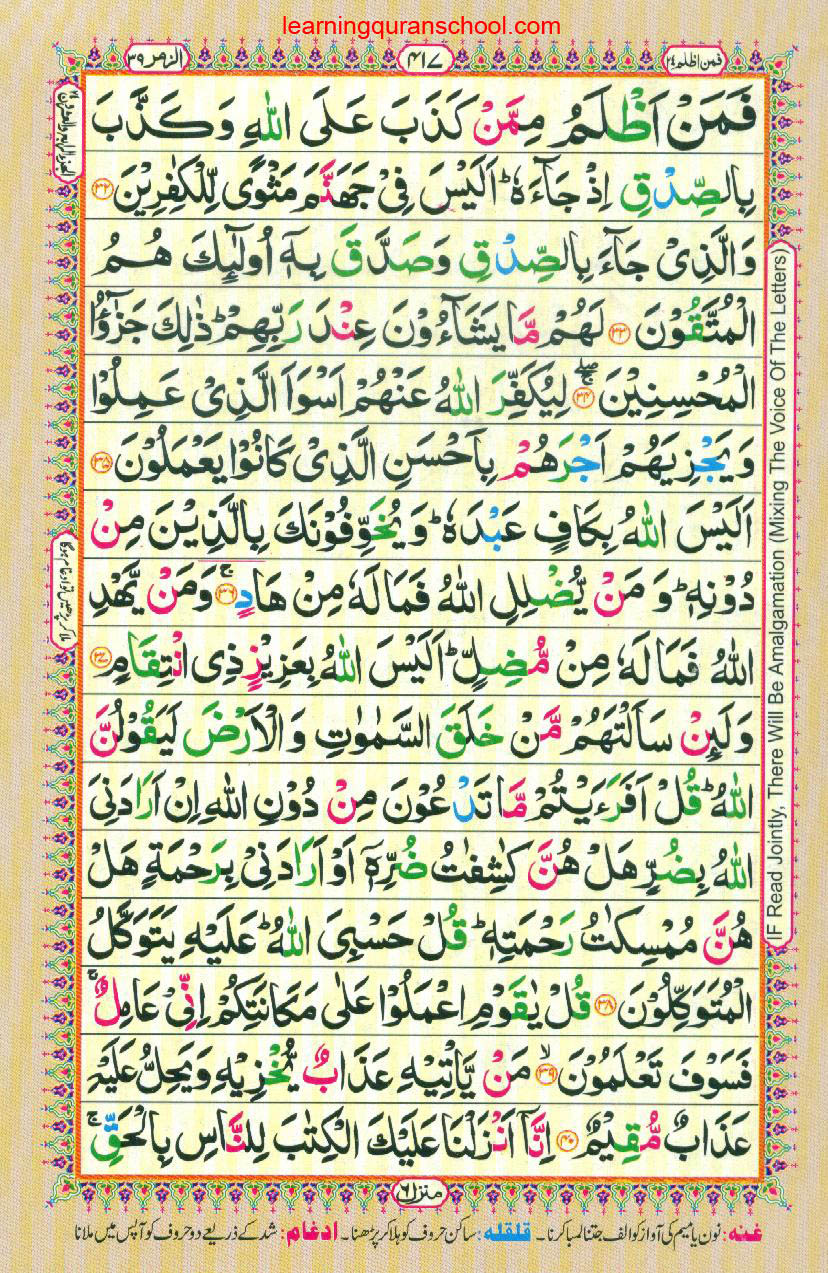 learningquranschool.com
الزمر ٣٩
٤١٧
فمن اظلم ٢٤
فَمَنْ اَظْلَمُ مِمَّنْ كَذَبَ عَلَى اللّٰهِ وَكَذَّبَ
بِالصِّدْقِ اِذْ جَآءَهٗ ؕ اَلَيْسَ فِيْ جَهَنَّمَ مَثْوًى لِّلْكٰفِرِيْنَ ﴿۳۲﴾
وَالَّذِيْ جَآءَ بِالصِّدْقِ وَصَدَّقَ بِهٖۤ اُولٰٓئِكَ هُمُ
الْمُتَّقُوْنَ ﴿۳۳﴾ لَهُمْ مَّا يَشَآءُوْنَ عِنْدَ رَبِّهِمْ ؕ ذٰلِكَ جَزٰٓؤُا
الْمُحْسِنِيْنَ ﴿۳۴﴾ لِيُكَفِّرَ اللّٰهُ عَنْهُمْ اَسْوَاَ الَّذِيْ عَمِلُوْا
وَيَجْزِيَهُمْ اَجْرَهُمْ بِاَحْسَنِ الَّذِيْ كَانُوْا يَعْمَلُوْنَ ﴿۳۵﴾
اَلَيْسَ اللّٰهُ بِكَافٍ عَبْدَهٗ ؕ وَيُخَوِّفُوْنَكَ بِالَّذِيْنَ مِنْ
دُوْنِهٖ ؕ وَمَنْ يُّضْلِلِ اللّٰهُ فَمَا لَهٗ مِنْ هَادٍ ۚ ﴿۳۶﴾ وَمَنْ يَّهْدِ
اللّٰهُ فَمَا لَهٗ مِنْ مُّضِلٍّ ؕ اَلَيْسَ اللّٰهُ بِعَزِيْزٍ ذِي انْتِقَامٍ ﴿۳۷﴾
وَلَئِنْ سَاَلْتَهُمْ مَّنْ خَلَقَ السَّمٰوٰتِ وَالْاَرْضَ لَيَقُوْلُنَّ
اللّٰهُ ؕ قُلْ اَفَرَءَيْتُمْ مَّا تَدْعُوْنَ مِنْ دُوْنِ اللّٰهِ اِنْ اَرَادَنِيَ
اللّٰهُ بِضُرٍّ هَلْ هُنَّ كٰشِفٰتُ ضُرِّهٖۤ اَوْ اَرَادَنِيْ بِرَحْمَةٍ هَلْ
هُنَّ مُمْسِكٰتُ رَحْمَتِهٖ ؕ قُلْ حَسْبِيَ اللّٰهُ ؕ عَلَيْهِ يَتَوَكَّلُ
الْمُتَوَكِّلُوْنَ ﴿۳۸﴾ قُلْ يٰقَوْمِ اعْمَلُوْا عَلٰى مَكَانَتِكُمْ اِنِّيْ عَامِلٌ ۚ
فَسَوْفَ تَعْلَمُوْنَ ۙ ﴿۳۹﴾ مَنْ يَّاْتِيْهِ عَذَابٌ يُّخْزِيْهِ وَيَحِلُّ عَلَيْهِ
عَذَابٌ مُّقِيْمٌ ﴿۴۰﴾ اِنَّاۤ اَنْزَلْنَا عَلَيْكَ الْكِتٰبَ لِلنَّاسِ بِالْحَقِّ ۚ
منزل ٦
IF Read Jointly, There Will Be Amalgamation (Mixing The Voice Of The Letters)
غنہ: نون یا میم کی آواز کو الف جتنا لمبا کرنا۔ قلقلہ: ساکن حروف کو ہلا کر پڑھنا۔ ادغام: شد کے ذریعے دو حروف کو آپس میں ملانا